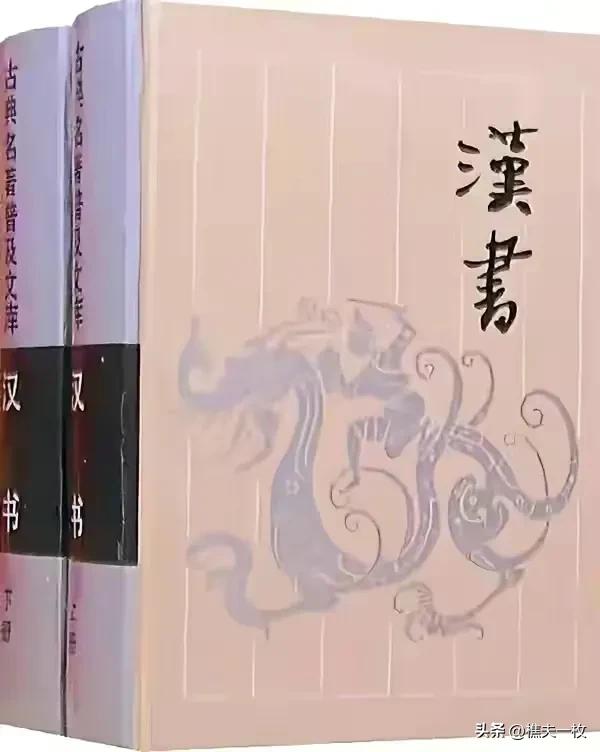 古典名著普及文库
汉书
下册
古典名著普及文库
汉书
上册
漢書
头条 @樵夫一枚